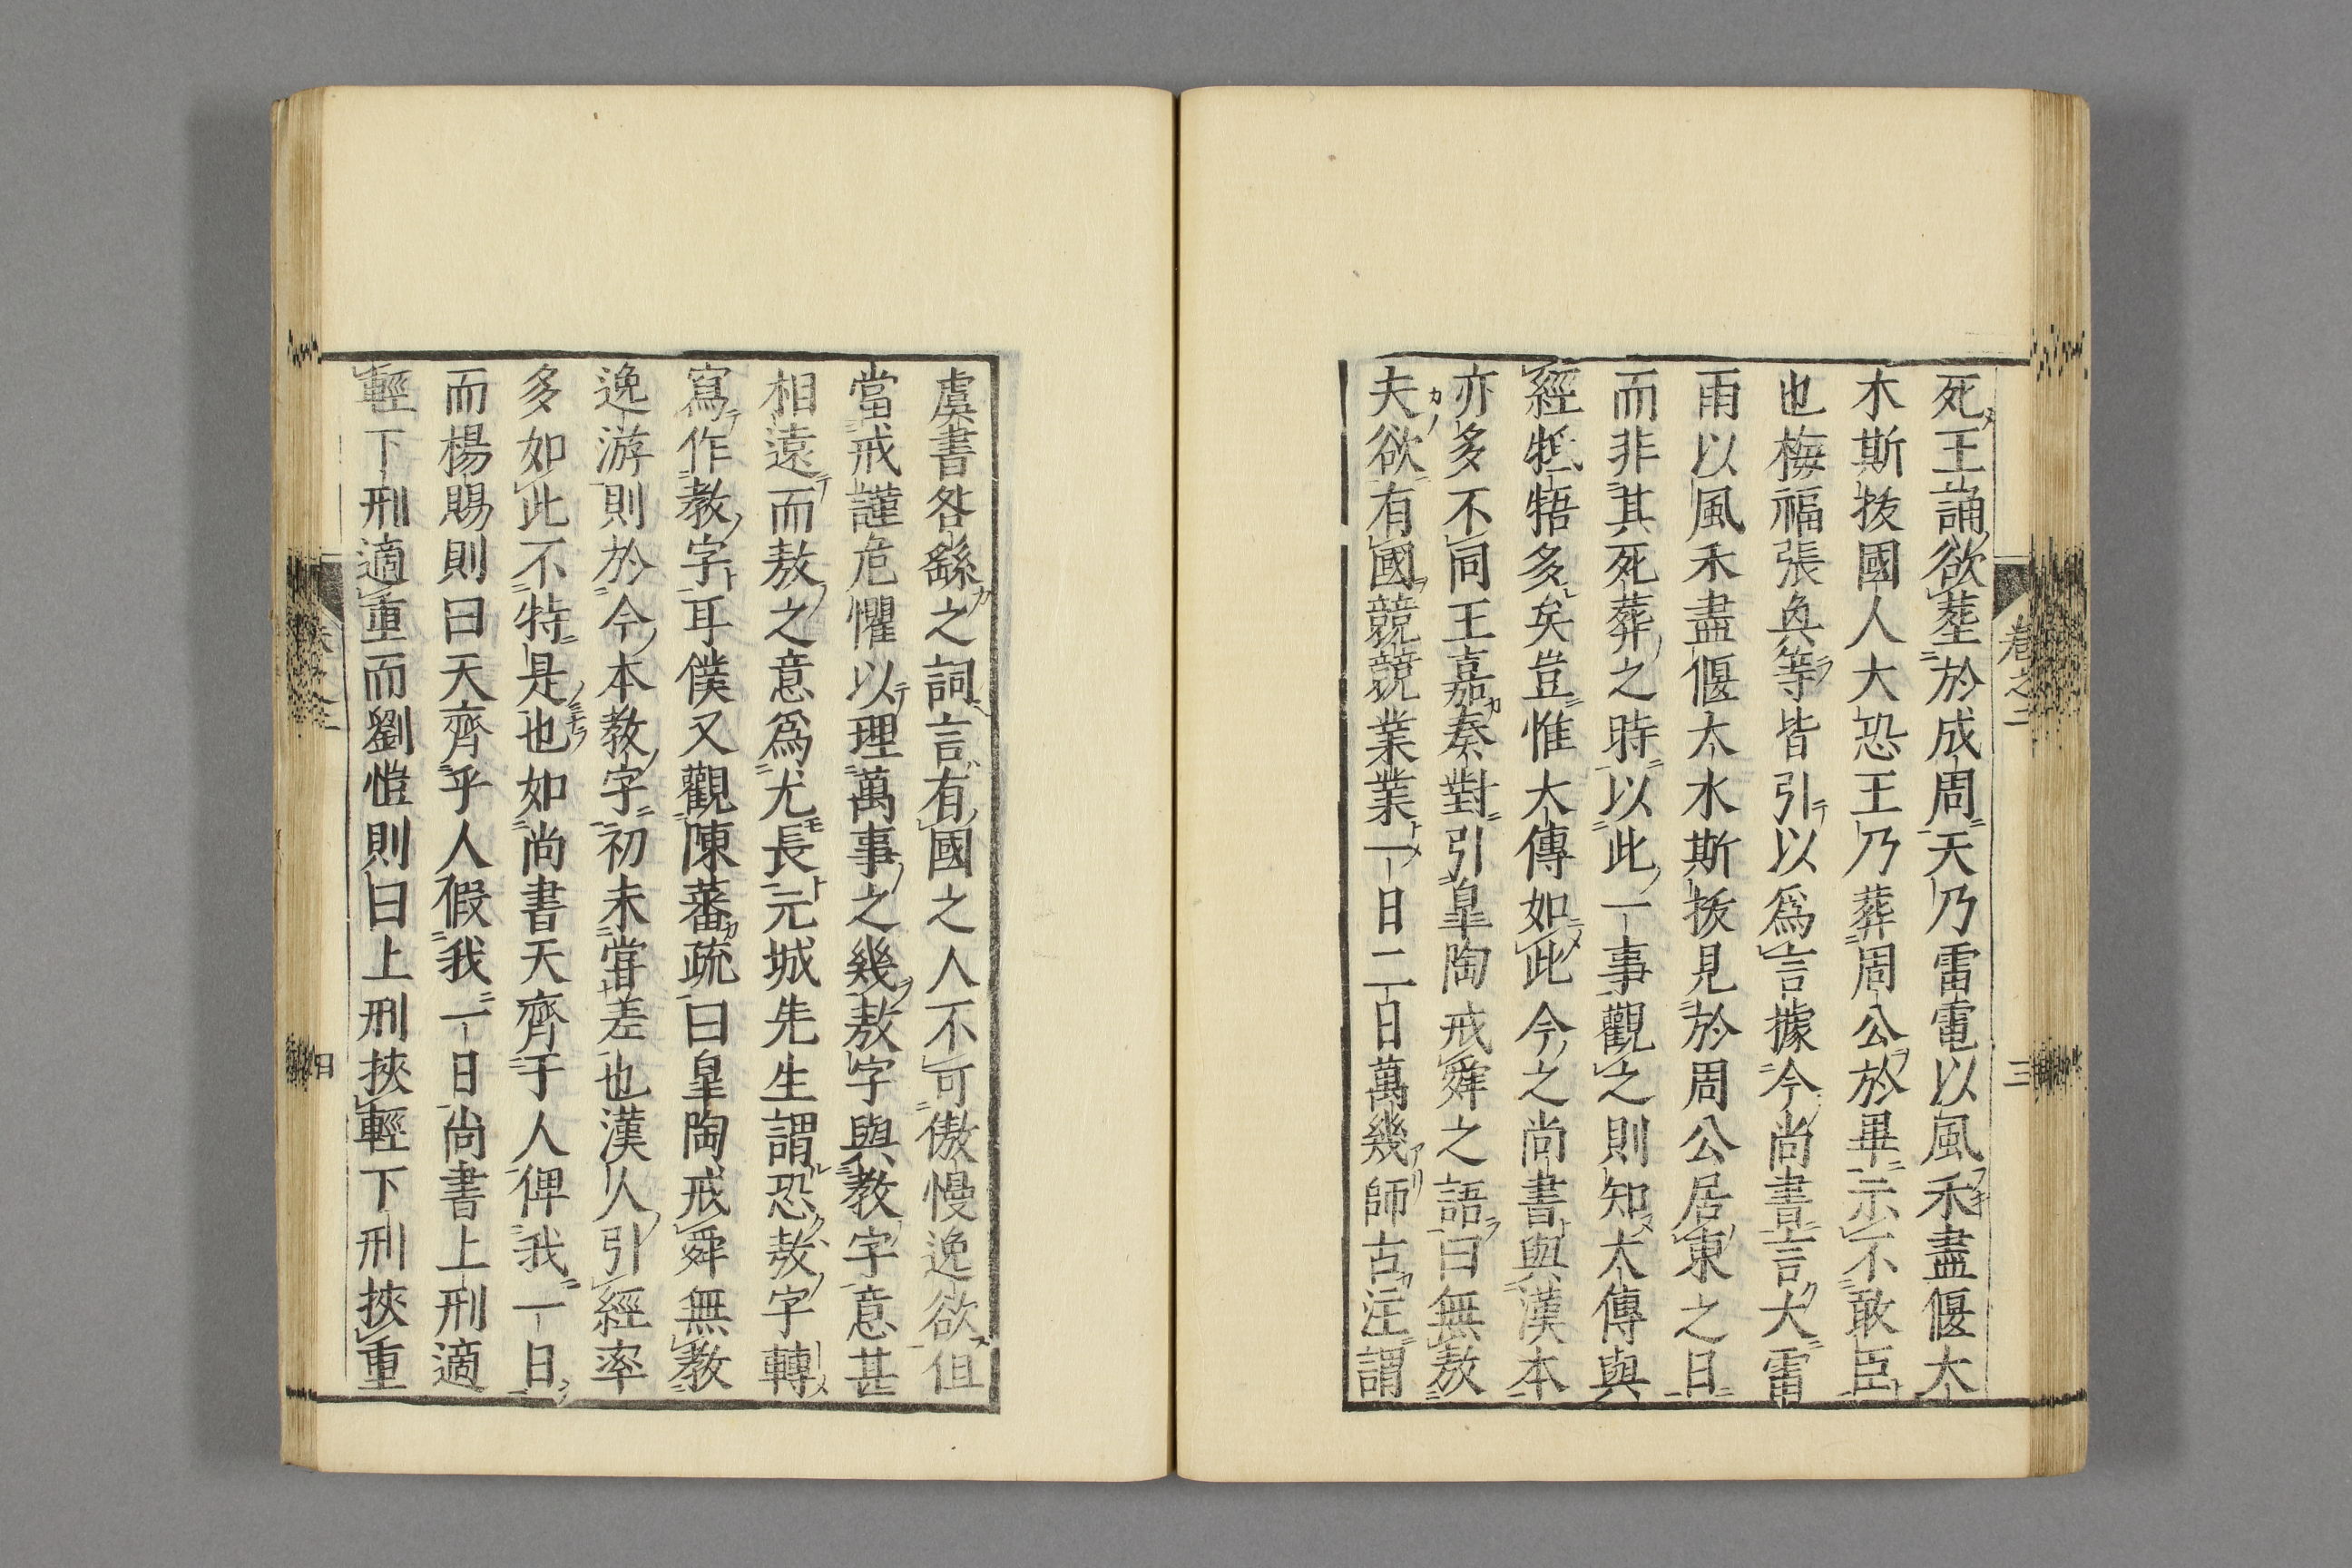 死王誦欲塟於成周天乃雷電以風禾盡偃大
木斯拔國人大恐王乃葬周公於畢示不敢臣
也梅福張奐等皆引以爲言據今尚書言大雷
雨以風禾盡偃大木斯拔見於周公居東之日
而非其死葬之時以此一事觀之則知大傳與
經牴牾多矣豈惟大傳如此今之尚書與漢本
亦多不同王嘉奏對引皐陶戒舜之語曰無敖
夫欲有國競競業業一日二日萬幾師古注謂
虞書咎繇之詞言有國之人不可傲慢逸欲但
當戒謹危懼以理萬事之幾敖字與教字意甚
相遠而敖之意爲尤長元城先生謂恐敖字轉
寫作教字耳僕又觀陳蕃疏曰皐陶戒舜無教
逸游則於今本教字初未甞差也漢人引經率
多如此不特是也如尚書天齊于人俾我一日
而楊賜則曰天齊乎人假我一日尚書上刑適
輕下刑適重而劉愷則曰上刑挾輕下刑挾重
卷之二
三